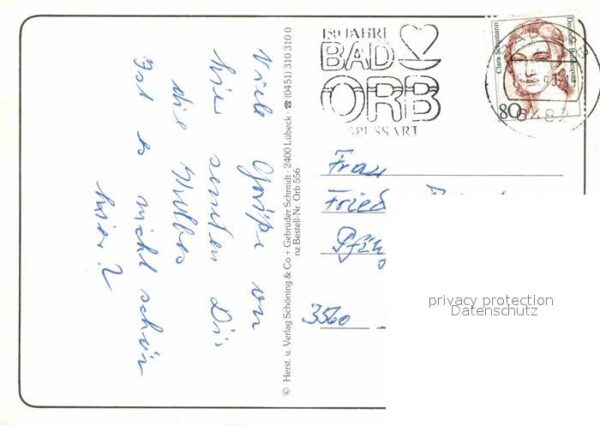 Viele Grüße von
hier senden Dir
die
Ist es nicht schön
hier?
© Herst. u. Verlag Schöning & Co + Gebrüder Schmidt · 2400 Lübeck · ☎ (0451) 310 310 0
nz Bestell-Nr. Orb 556
150 JAHRE
BAD
ORB
SPESSART
Clara Schumann
Deutsche Bundespost
80
6482
Frau
Fried
3560
privacy protection
Datenschutz